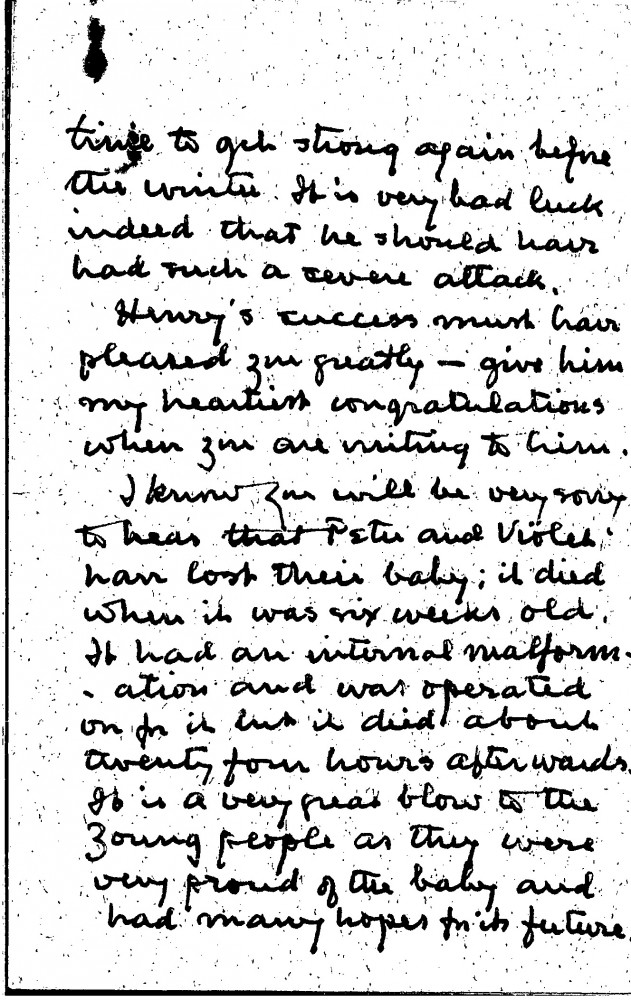 time to get strong again before
the winter. It is very bad luck
indeed that he should have
had such a severe attack.
Henry's success must have
pleased you greatly — give him
my heartiest congratulations
when you are writing to him.
I know you will be very sorry
to hear that Peter and Violet
have lost their baby; it died
when it was six weeks old.
It had an internal malform-
- ation and was operated
on for it but it died about
twenty four hours afterwards.
It is a very great blow to the
young people as they were
very proud of the baby and
had many hopes for its future.